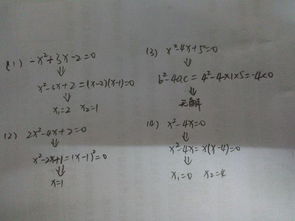 (1) -x²+3x-2=0
⇓
x²-3x+2=(x-2)(x-1)=0
⇓
x₁=2 x₂=1
(2) 2x²-4x+2=0
⇓
x²-2x+1=(x-1)²=0
⇓
x=1
(3) x²-4x+5=0
⇓
b²-4ac=4²-4×1×5=-4<0
⇓
无解
(4) x²-4x=0
⇓
x²-4x=x(x-4)=0
⇓
x₁=0 x₂=4